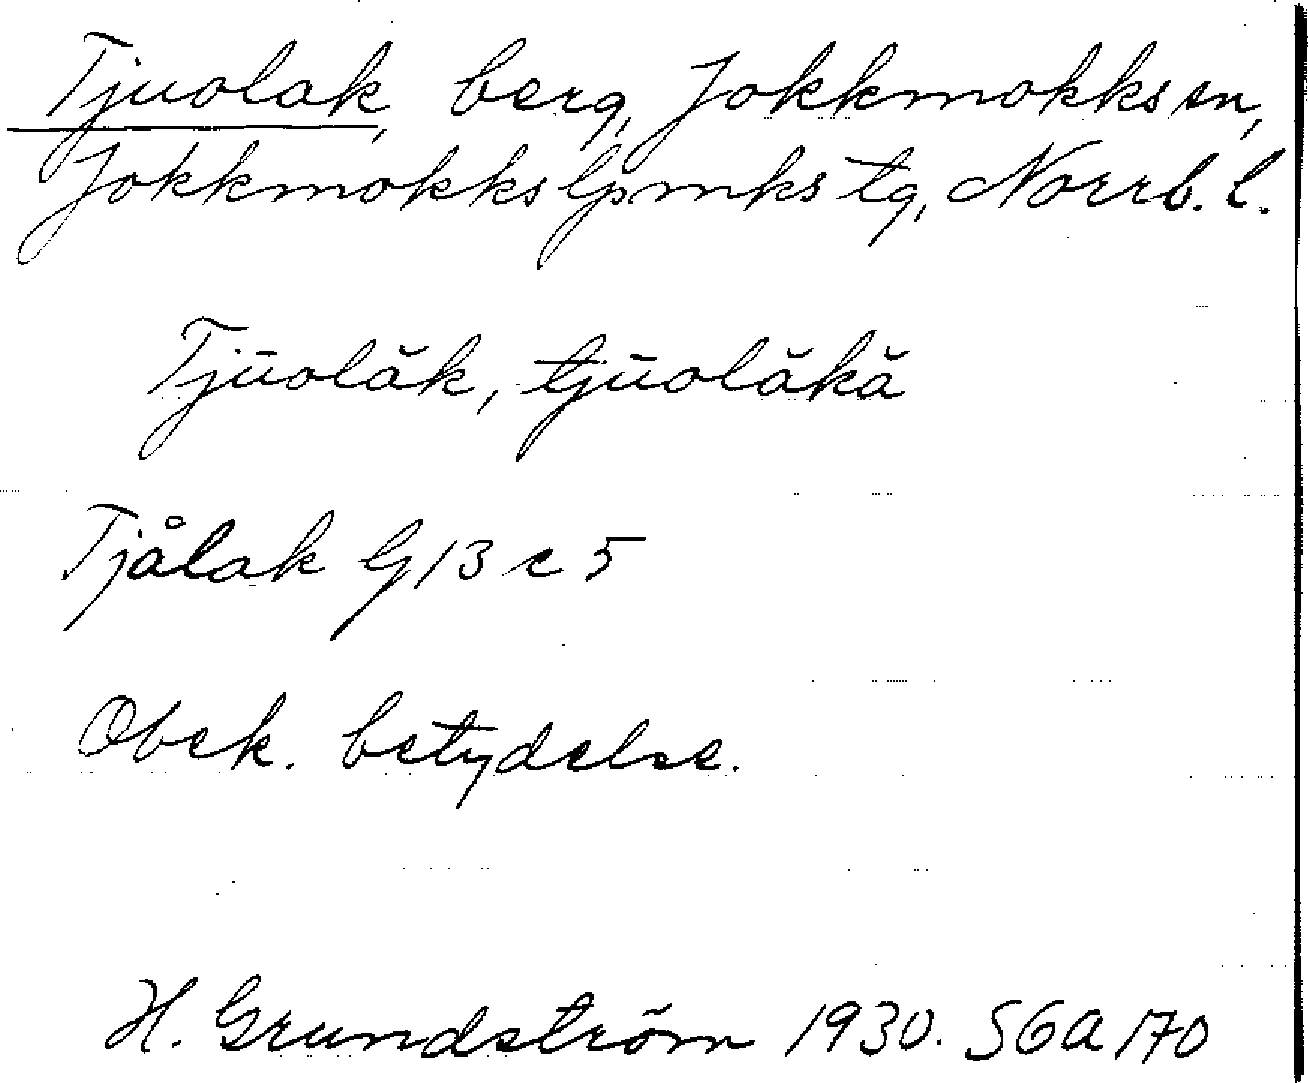 Tjuolak, berg, Jokkmokks sn,
Jokkmokks lpmks tg, Norrb. l.
Tjūolăk, tjūolăkă
Tjålak G13 c 5
Obek. betydelse.
H. Grundström 1930. SGA 170